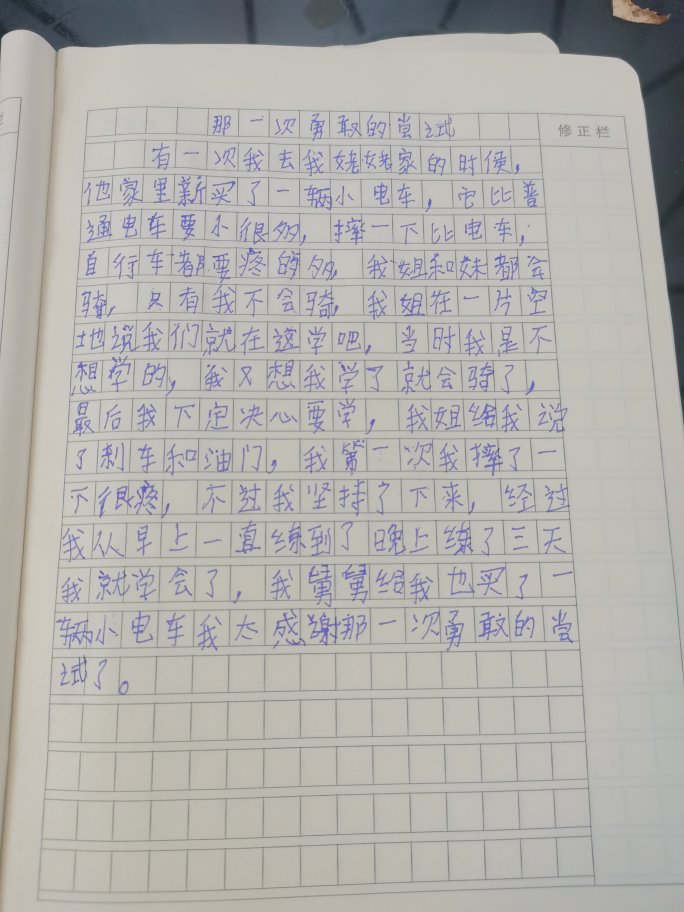 修正栏
那一次勇敢的尝试
有一次我去我姥姥家的时候,
他家里新买了一辆小电车,它比普
通电车要小很多,摔一下比电车,
自行车都要疼的多,我姐和妹都会
骑,只有我不会骑,我姐在一片空
地说我们就在这学吧,当时我是不
想学的,我又想我学了就会骑了,
最后我下定决心要学,我姐给我说
了刹车和油门,我第一次我摔了一
下很疼,不过我坚持了下来,经过
我从早上一直练到了晚上练了三天
我就学会了,我舅舅给我也买了一
辆小电车我太感谢那一次勇敢的尝
试了。